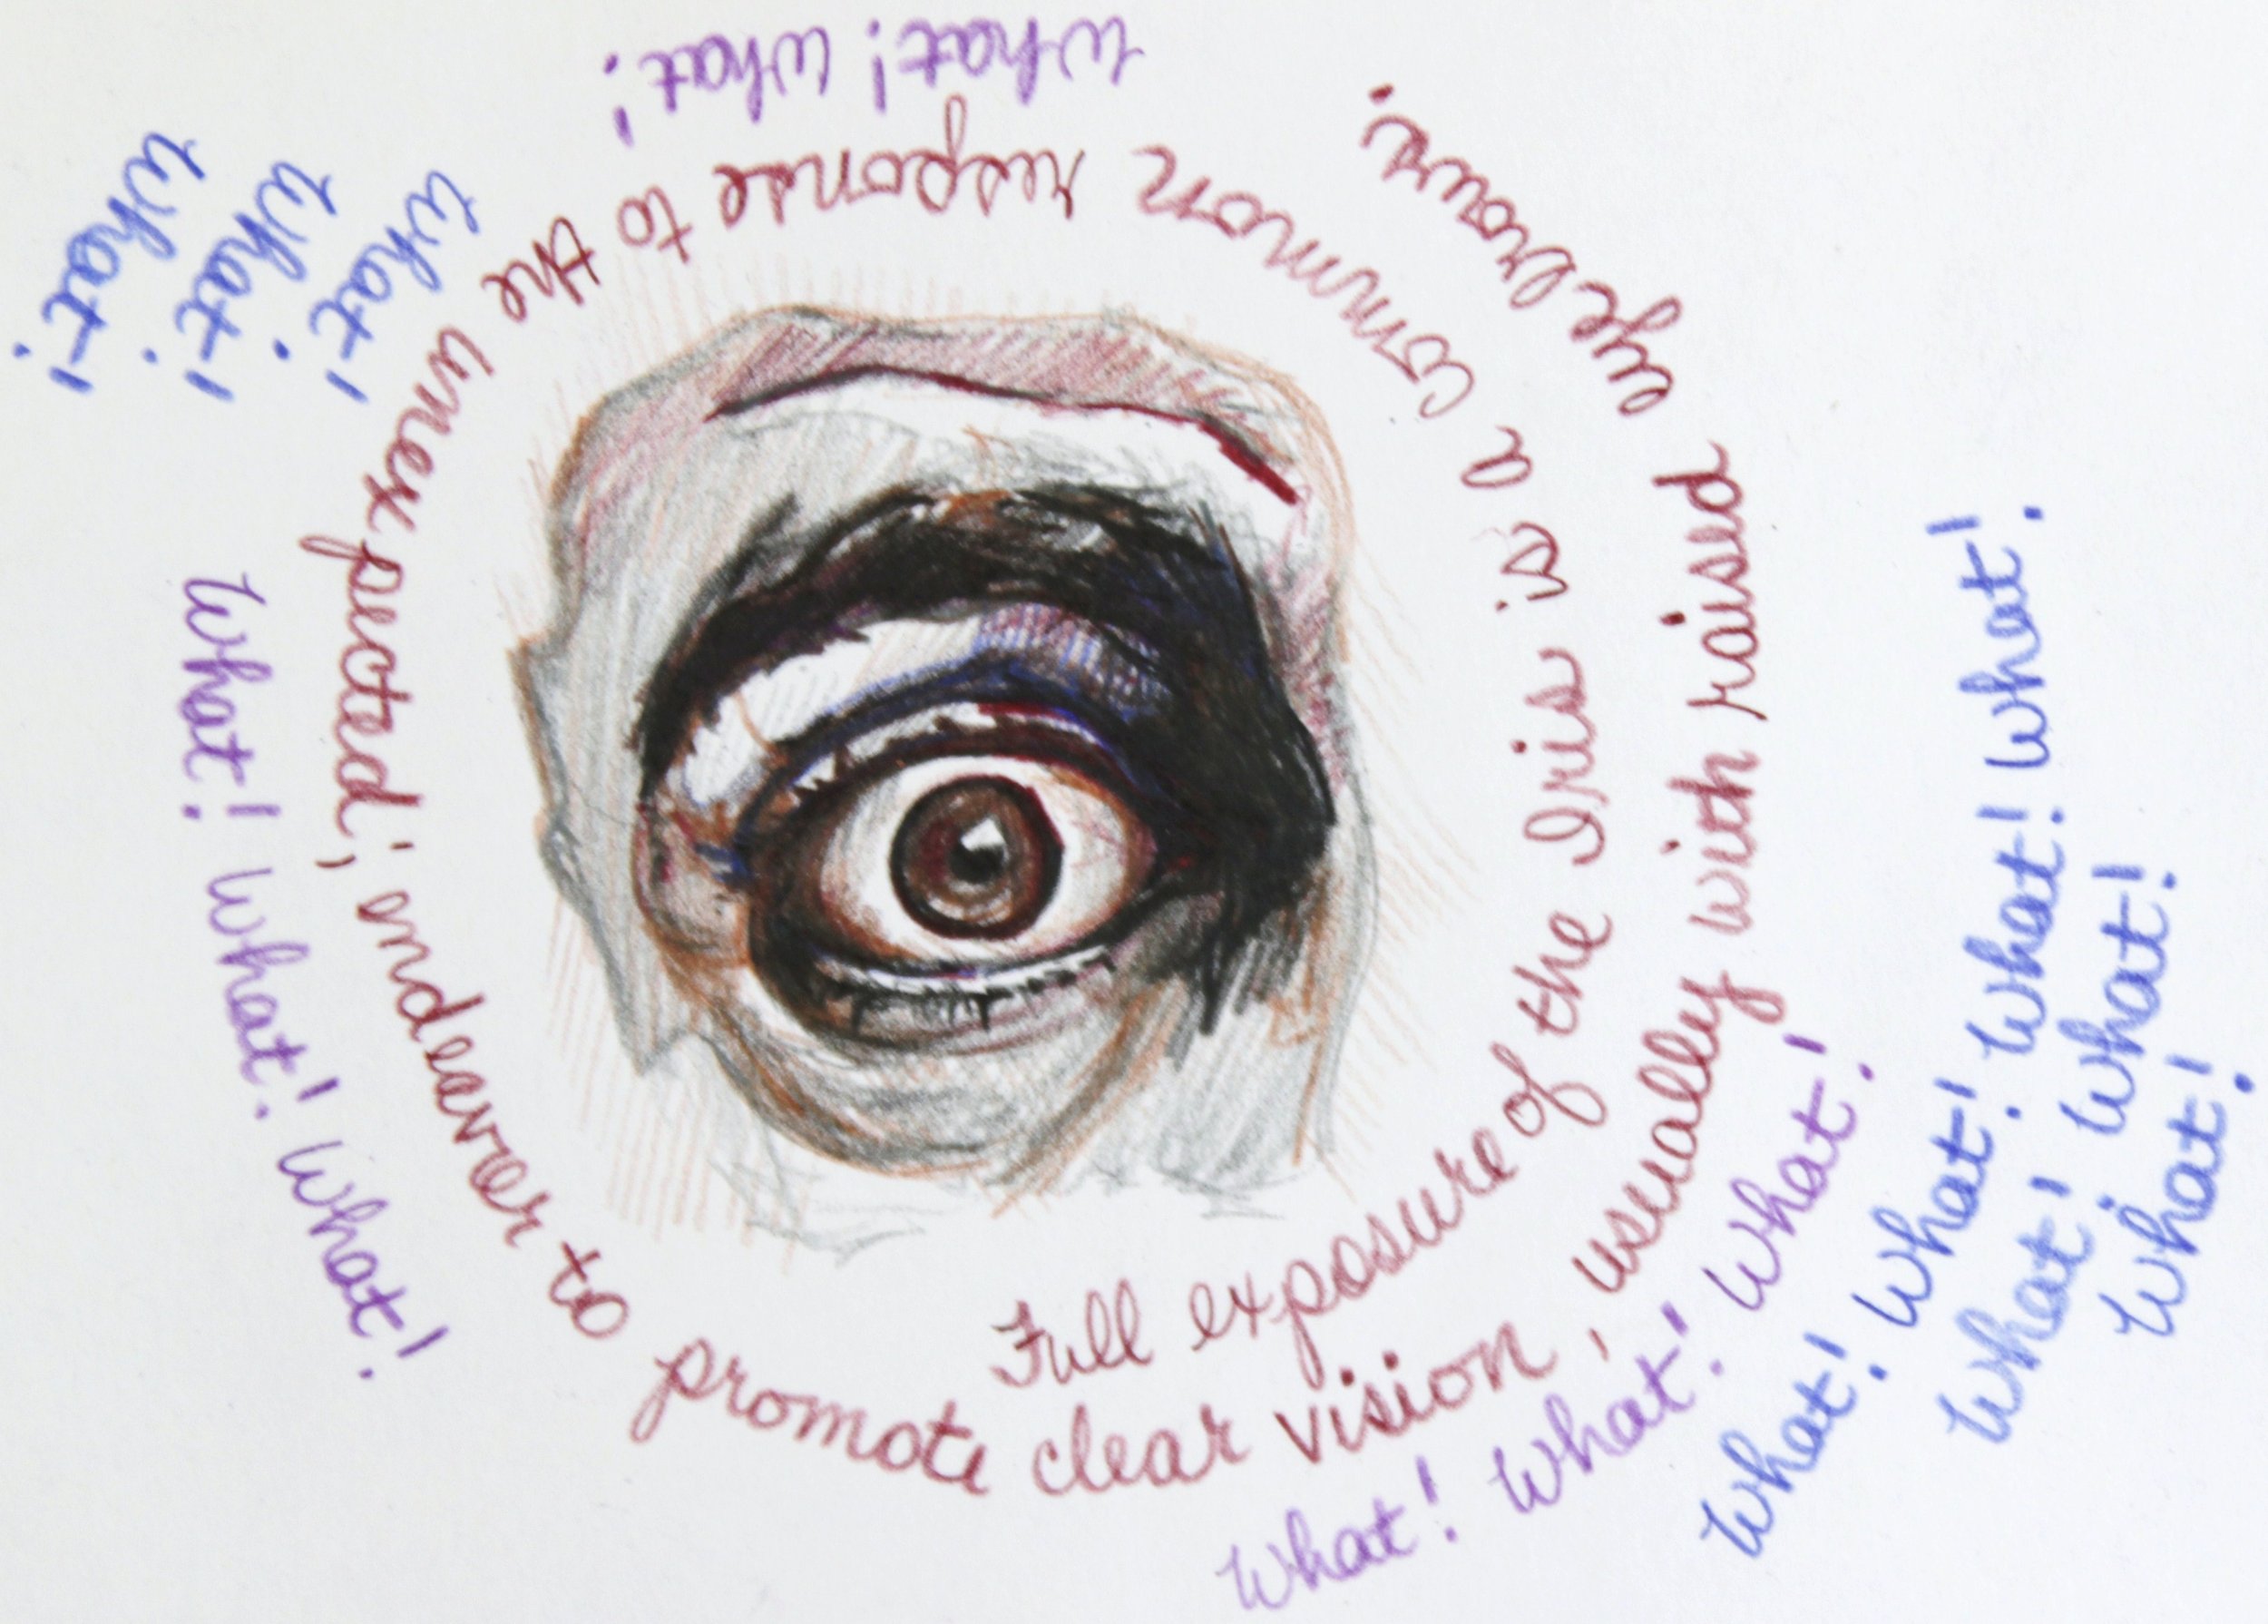 Full exposure of the Iris is a common response to the unexpected; endeaver to promote clear vision, usually with raised eyebrows.
What! What!
What!
What!
What!
What! What! What!
What! What! What!
What! What! What! What!
What! What!
What!